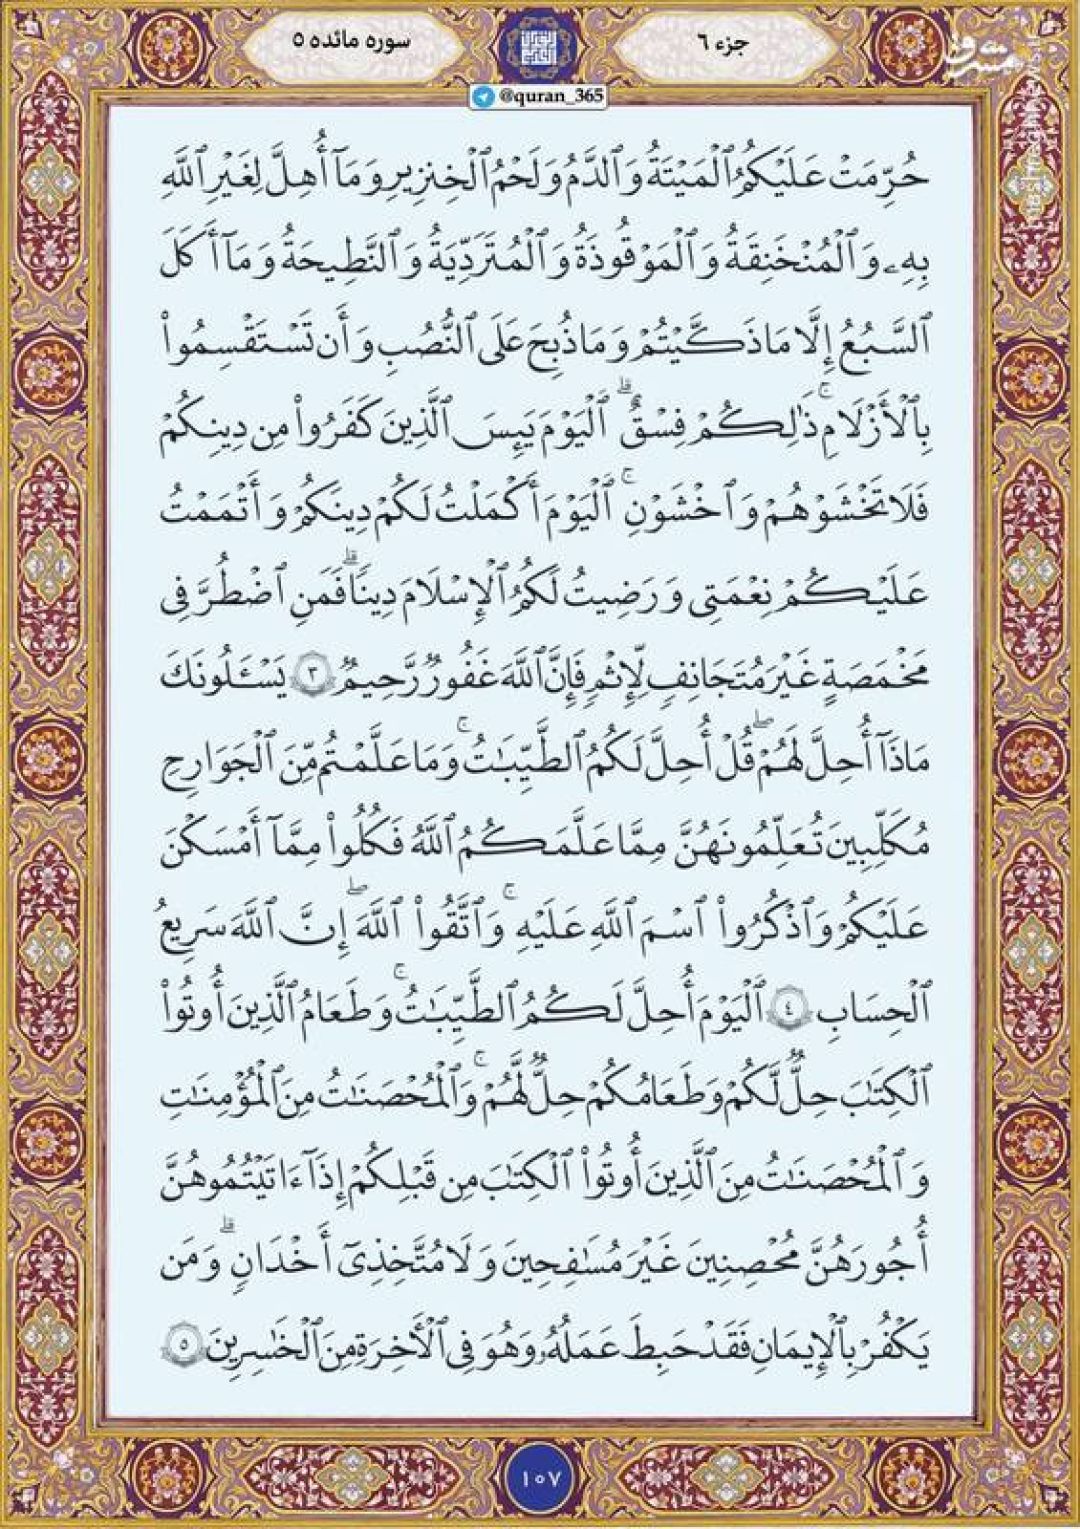 جزء ۶
سوره مائده ۵
@quran_365
مشرق
حُرِّمَتْ عَلَيْكُمُ ٱلْمَيْتَةُ وَٱلدَّمُ وَلَحْمُ ٱلْخِنزِيرِ وَمَآ أُهِلَّ لِغَيْرِ ٱللَّهِ
بِهِۦ وَٱلْمُنْخَنِقَةُ وَٱلْمَوْقُوذَةُ وَٱلْمُتَرَدِّيَةُ وَٱلنَّطِيحَةُ وَمَآ أَكَلَ
ٱلسَّبُعُ إِلَّا مَا ذَكَّيْتُمْ وَمَا ذُبِحَ عَلَى ٱلنُّصُبِ وَأَن تَسْتَقْسِمُوا۟
بِٱلْأَزْلَٰمِ ۚ ذَٰلِكُمْ فِسْقٌ ۗ ٱلْيَوْمَ يَئِسَ ٱلَّذِينَ كَفَرُوا۟ مِن دِينِكُمْ
فَلَا تَخْشَوْهُمْ وَٱخْشَوْنِ ۚ ٱلْيَوْمَ أَكْمَلْتُ لَكُمْ دِينَكُمْ وَأَتْمَمْتُ
عَلَيْكُمْ نِعْمَتِى وَرَضِيتُ لَكُمُ ٱلْإِسْلَٰمَ دِينًا ۗ فَمَنِ ٱضْطُرَّ فِى
مَخْمَصَةٍ غَيْرَ مُتَجَانِفٍ لِّإِثْمٍ فَإِنَّ ٱللَّهَ غَفُورٌ رَّحِيمٌ ٣ يَسْـَٔلُونَكَ
مَاذَآ أُحِلَّ لَهُمْ ۖ قُلْ أُحِلَّ لَكُمُ ٱلطَّيِّبَٰتُ ۚ وَمَا عَلَّمْتُم مِّنَ ٱلْجَوَارِحِ
مُكَلِّبِينَ تُعَلِّمُونَهُنَّ مِمَّا عَلَّمَكُمُ ٱللَّهُ فَكُلُوا۟ مِمَّآ أَمْسَكْنَ
عَلَيْكُمْ وَٱذْكُرُوا۟ ٱسْمَ ٱللَّهِ عَلَيْهِ ۚ وَٱتَّقُوا۟ ٱللَّهَ ۖ إِنَّ ٱللَّهَ سَرِيعُ
ٱلْحِسَابِ ٤ ٱلْيَوْمَ أُحِلَّ لَكُمُ ٱلطَّيِّبَٰتُ ۚ وَطَعَامُ ٱلَّذِينَ أُوتُوا۟
ٱلْكِتَٰبَ حِلٌّ لَّكُمْ وَطَعَامُكُمْ حِلٌّ لَّهُمْ ۚ وَٱلْمُحْصَنَٰتُ مِنَ ٱلْمُؤْمِنَٰتِ
وَٱلْمُحْصَنَٰتُ مِنَ ٱلَّذِينَ أُوتُوا۟ ٱلْكِتَٰبَ مِن قَبْلِكُمْ إِذَآ ءَاتَيْتُمُوهُنَّ
أُجُورَهُنَّ مُحْصِنِينَ غَيْرَ مُسَٰفِحِينَ وَلَا مُتَّخِذِىٓ أَخْدَانٍ ۗ وَمَن
يَكْفُرْ بِٱلْإِيمَٰنِ فَقَدْ حَبِطَ عَمَلُهُۥ وَهُوَ فِى ٱلْأَخِرَةِ مِنَ ٱلْخَٰسِرِينَ ٥
١٠٧